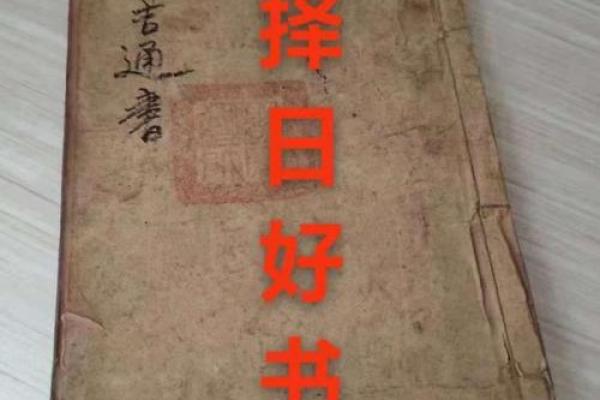 择日好书
吉通書